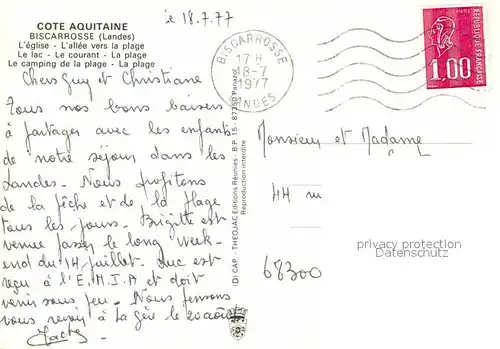 le 18.7.77
COTE AQUITAINE
BISCARROSSE (Landes)
L'église - L'allée vers la plage
Le lac - Le courant - La plage
Le camping de la plage - La plage
BISCARROSSE
17 H
18-7
1977
LANDES
REPUBLIQUE FRANÇAISE
1,00
Chers Guy et Christiane
Tous nos bons baisers
à partager avec les enfants
de notre séjour dans les
Landes. Nous profitons
de la pêche et de la plage
tous les jours. Brigitte est
venue passer le long week-
end du 14 juillet. Luc est
reçu à l'E.M.I.A et doit
venir sous peu. Nous pensons
vous revoir à La le 20 août
(D) CAP - THEOJAC Editions Réunies - B.P. 15 - 87350 Panazol
Reproduction interdite
Monsieur et Madame
44 rue
68300
privacy protection
Datenschutz